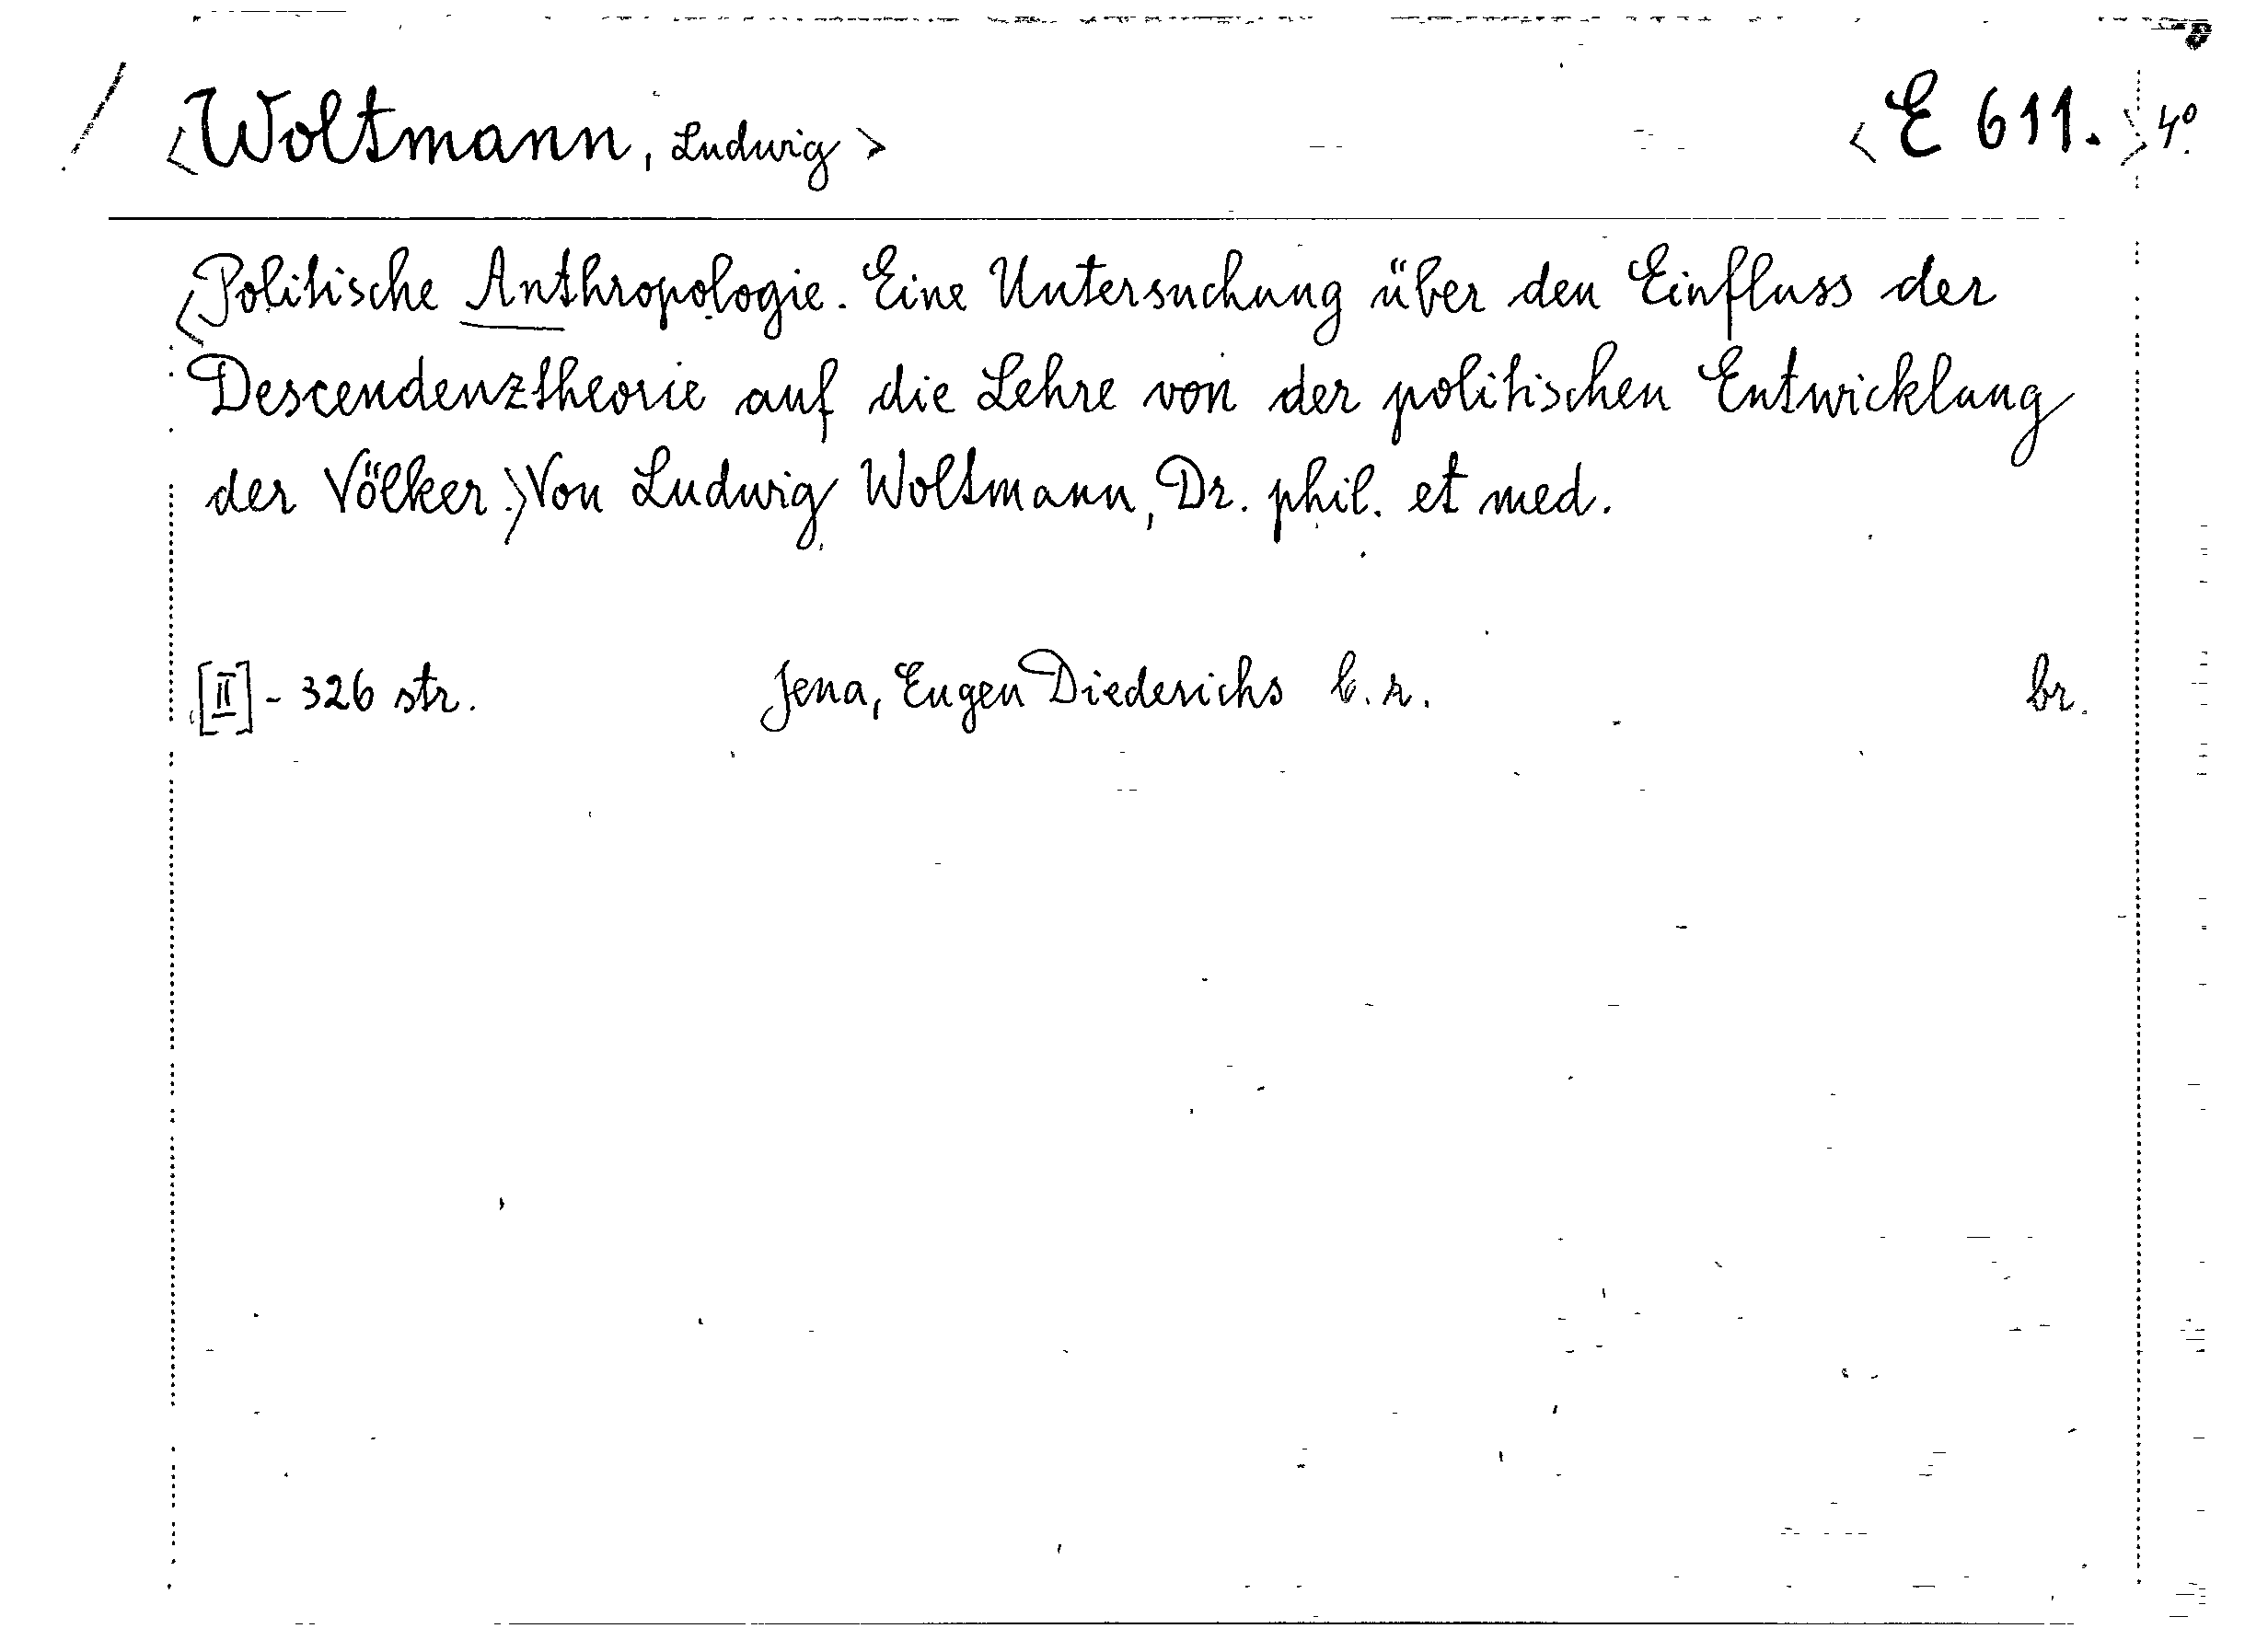 <Woltmann, Ludwig> <E 611.> 4º
<Politische Anthropologie. Eine Untersuchung über den Einfluss der
Descendenztheorie auf die Lehre von der politischen Entwicklung
der Völker.> Von Ludwig Woltmann, Dr. phil. et med.
[II] - 326 str. Jena, Eugen Diederichs b.r. br.